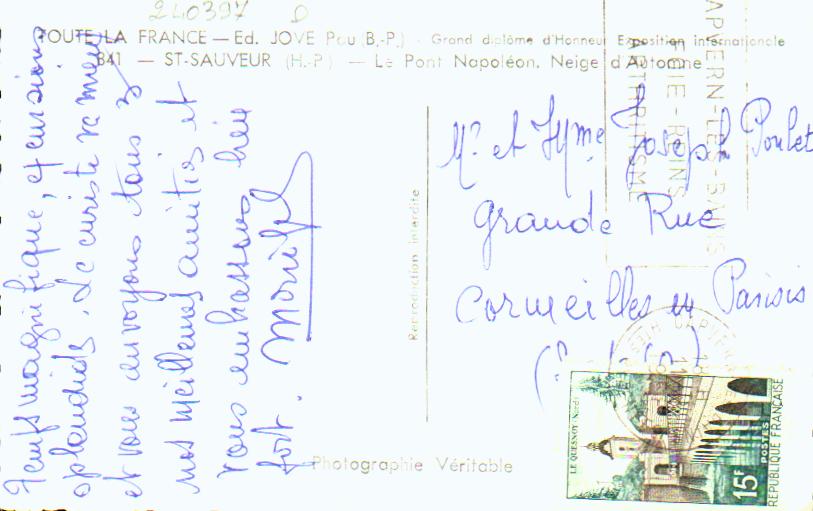 240397 D
TOUTE LA FRANCE — Ed. JOVE Pau (B.-P.) - Grand diplôme d'Honneur Exposition internationale
841 — ST-SAUVEUR (H.-P.) — Le Pont Napoléon. Neige d'Automne
Temps magnifique, excursions
splendides. Le curiste va mieux
et vous envoyons tous 3
nos meilleures amitiés et
vous embrassons bien
fort.
Reproduction interdite
Photographie Véritable
CAPVERN-LES-BAINS
FOIE - REINS
ARTHRITISME
Mr et Mme Joseph Poulet
Grande Rue
Cormeilles en Parisis
LE QUESNOY (Nord)
15F
POSTES
REPUBLIQUE FRANÇAISE